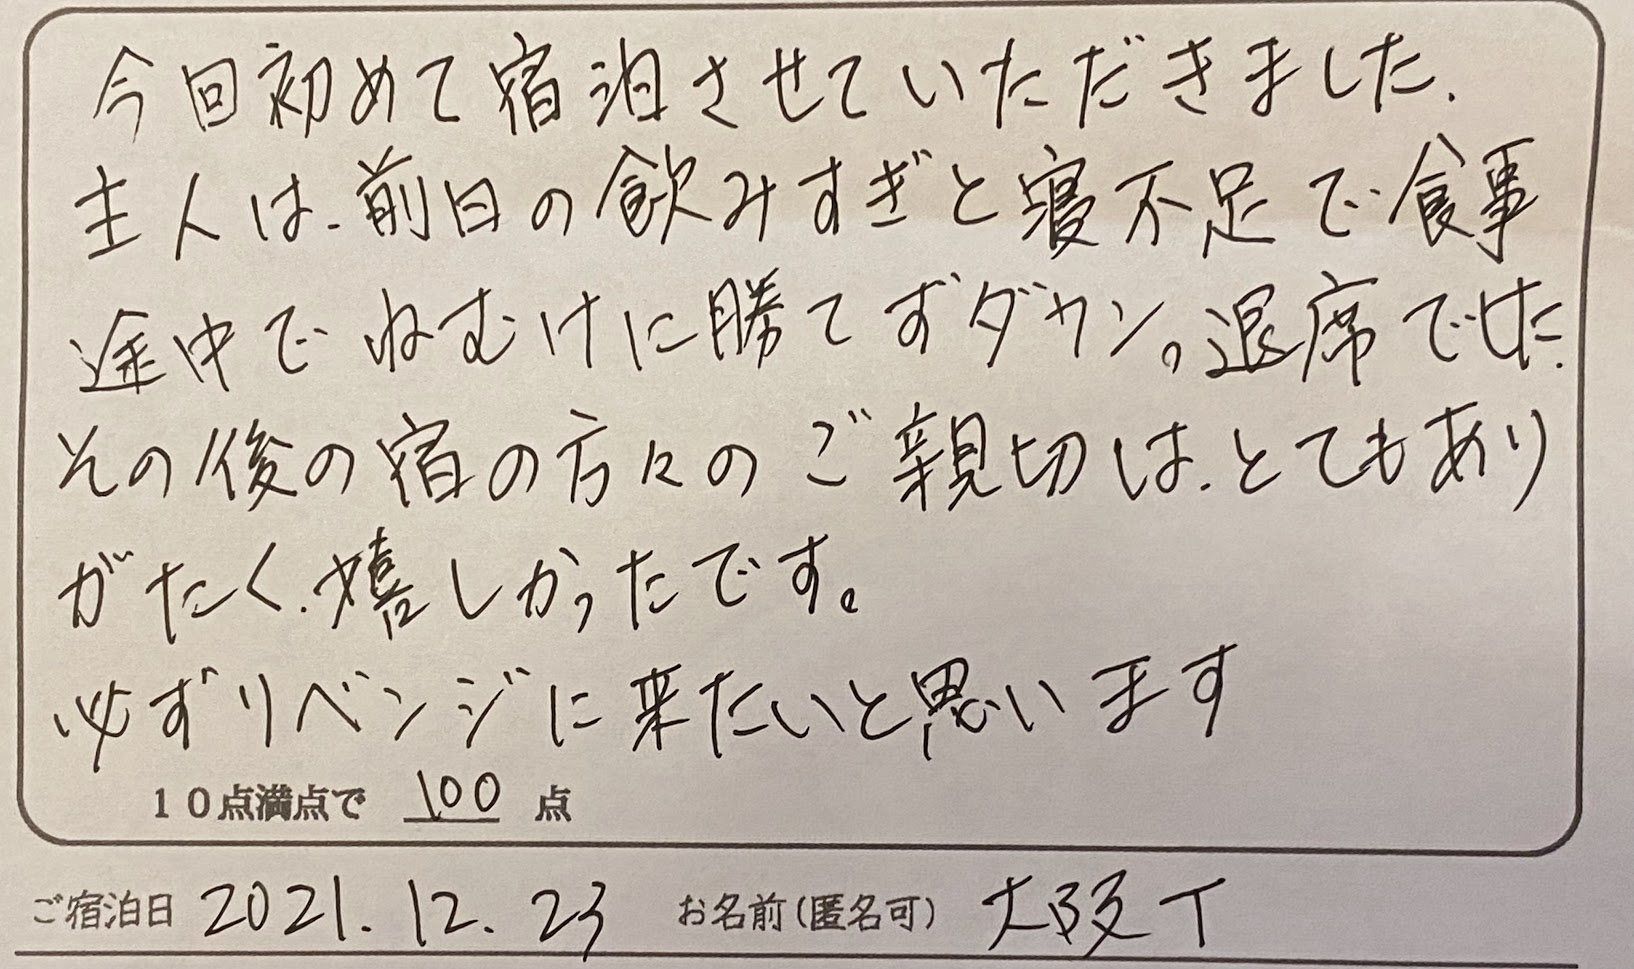 今回初めて宿泊させていただきました.
主人は、前日の飲みすぎと寝不足で食事
途中でねむけに勝てずダウン。退席でした.
その後の宿の方々のご親切は、とてもあり
がたく、嬉しかったです。
必ずリベンジに来たいと思います
10点満点で 100 点
ご宿泊日 2021.12.23 お名前(匿名可) 大阪 T